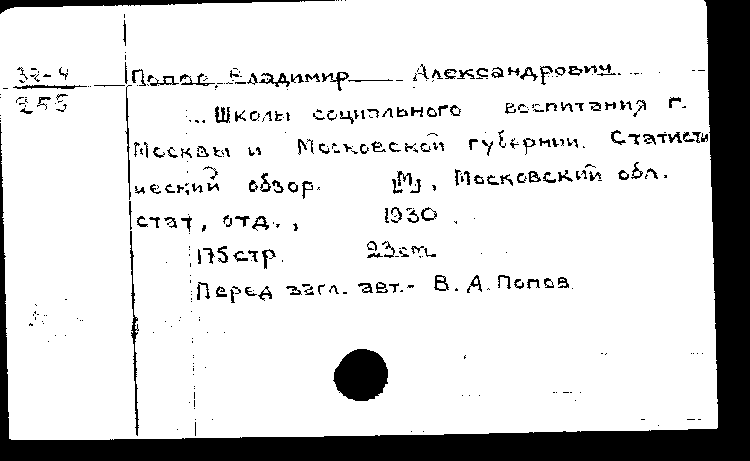 32-4
255
Попов, Владимир Александрович
... Школы социального воспитания г.
Москвы и Московской губернии. Статисти
ческий обзор. [М], Московский обл.
стат, отд., 1930.
175 стр. 23 cm.
Перед загл. авт.- В. А. Попов